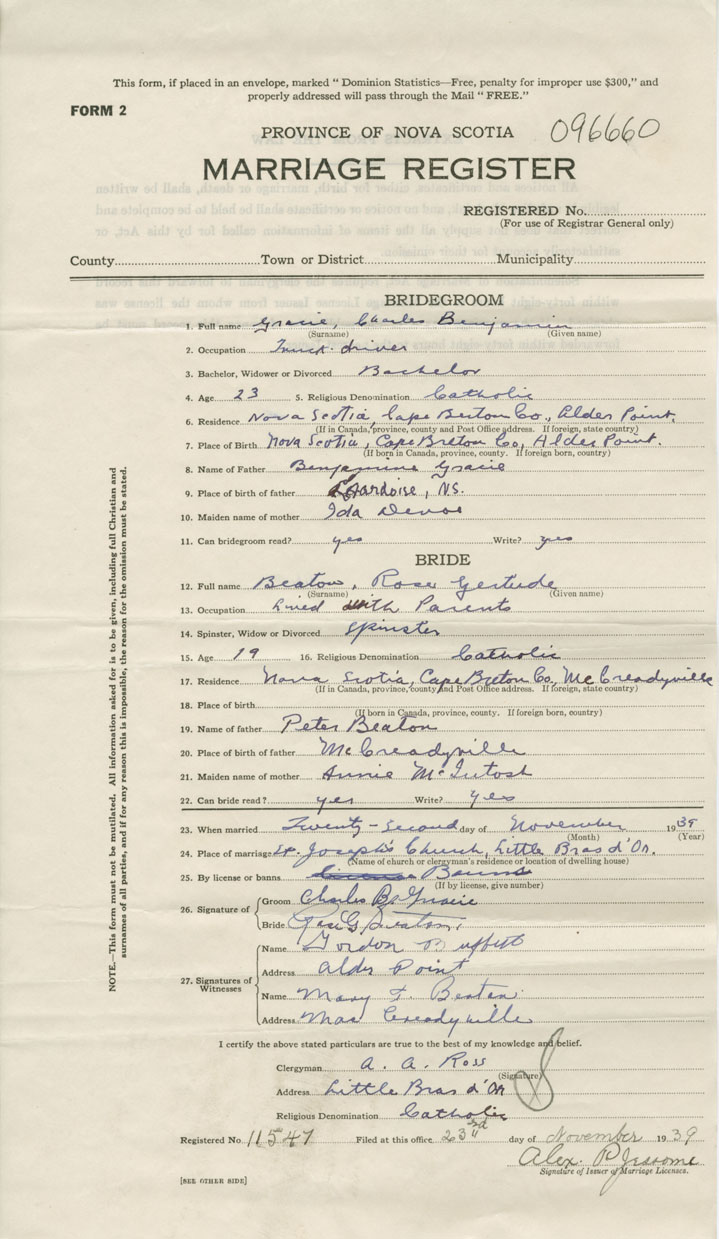 This form, if placed in an envelope, marked “ Dominion Statistics—Free, penalty for improper use $300,” and
properly addressed will pass through the Mail “ FREE.”
FORM 2
PROVINCE OF NOVA SCOTIA 096660
MARRIAGE REGISTER
REGISTERED No.
(For use of Registrar General only)
County Town or District Municipality
BRIDEGROOM
1. Full name Gracie, Charles Benjamin
(Surname) (Given name)
2. Occupation Truck driver
3. Bachelor, Widower or Divorced Bachelor
4. Age 23 5. Religious Denomination Catholic
6. Residence Nova Scotia, Cape Breton Co., Alder Point.
(If in Canada, province, county and Post Office address. If foreign, state country)
7. Place of Birth Nova Scotia, Cape Breton Co, Alder Point.
(If born in Canada, province, county. If foreign born, country)
8. Name of Father Benjamine Gracie
9. Place of birth of father Lardoise, N.S.
10. Maiden name of mother Ida
11. Can bridegroom read? yes Write? yes
BRIDE
12. Full name Beaton, Rose Gertude
(Surname) (Given name)
13. Occupation Lived with Parents
14. Spinster, Widow or Divorced Spinster
15. Age 19 16. Religious Denomination Catholic
17. Residence Nova Scotia, Cape Breton Co, McCreadyville
(If in Canada, province, county and Post Office address. If foreign, state country)
18. Place of birth
(If born in Canada, province, county. If foreign born, country)
19. Name of father Peter Beaton
20. Place of birth of father McCreadyville
21. Maiden name of mother Annie McIntosh
22. Can bride read? yes Write? yes
23. When married Twenty-Second day of November 1939
(Month) (Year)
24. Place of marriage St. Joseph's Church, Little Bras d'Or.
(Name of church or clergyman's residence or location of dwelling house)
25. By license or banns Banns
(If by license, give number)
26. Signature of
Groom Charles B. Gracie
Bride Rose G. Beaton
27. Signatures of Witnesses
Name Gordon Buffett
Address Alder Point
Name Mary F. Beaton
Address Mac Creadyville
I certify the above stated particulars are true to the best of my knowledge and belief.
Clergyman A. A. Ross
(Signature)
Address Little Bras d'Or
Religious Denomination Catholic
Registered No. 11547 Filed at this office 23rd day of November 1939
Alex. P. Jessome
Signature of Issuer of Marriage Licenses.
[SEE OTHER SIDE]
NOTE.—This form must not be mutilated. All information asked for is to be given, including full Christian and
surnames of all parties, and if for any reason this is impossible, the reason for the omission must be stated.